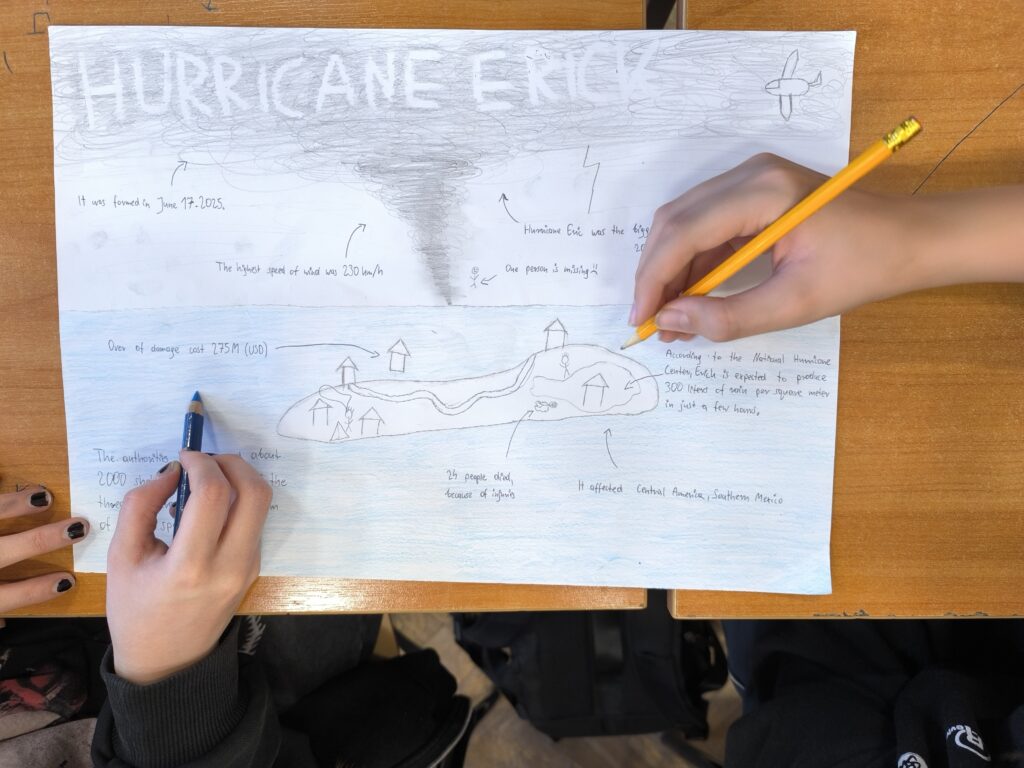 HURRICANE ERICK
It was formed in June 17.2025.
Hurricane Eric was the
The highest speed of wind was 230 km/h
One person is missing!!
Over of damage cost 275M (USD)
According to the National Hurricane
Center, Erick is expected to produce
300 liters of rain per square meter
in just a few hours.
The authorities about
2000 the
of
24 people died,
because of injuries
It affected Central America, Southern Mexico